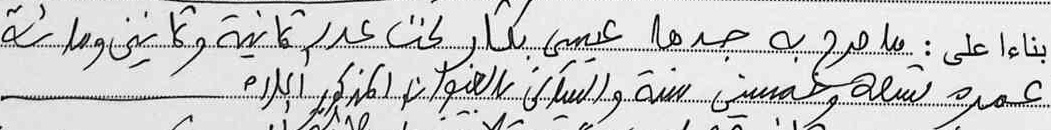 بناءا على : ما صرح به جدها عيسى بكار تحت عدد ثمانية وثمانين ومائة
عمره تسعة وخمسين سنة والساكن بالعنوان المذكور أعلاه